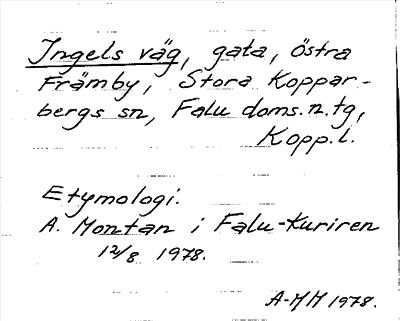 Ingels väg, gata, östra
Främby, Stora Koppar-
bergs sn, Falu doms.n.tg,
Kopp.l.
Etymologi.
A. Montan i Falu-Kuriren
12/8 1978.
A-MM 1978.